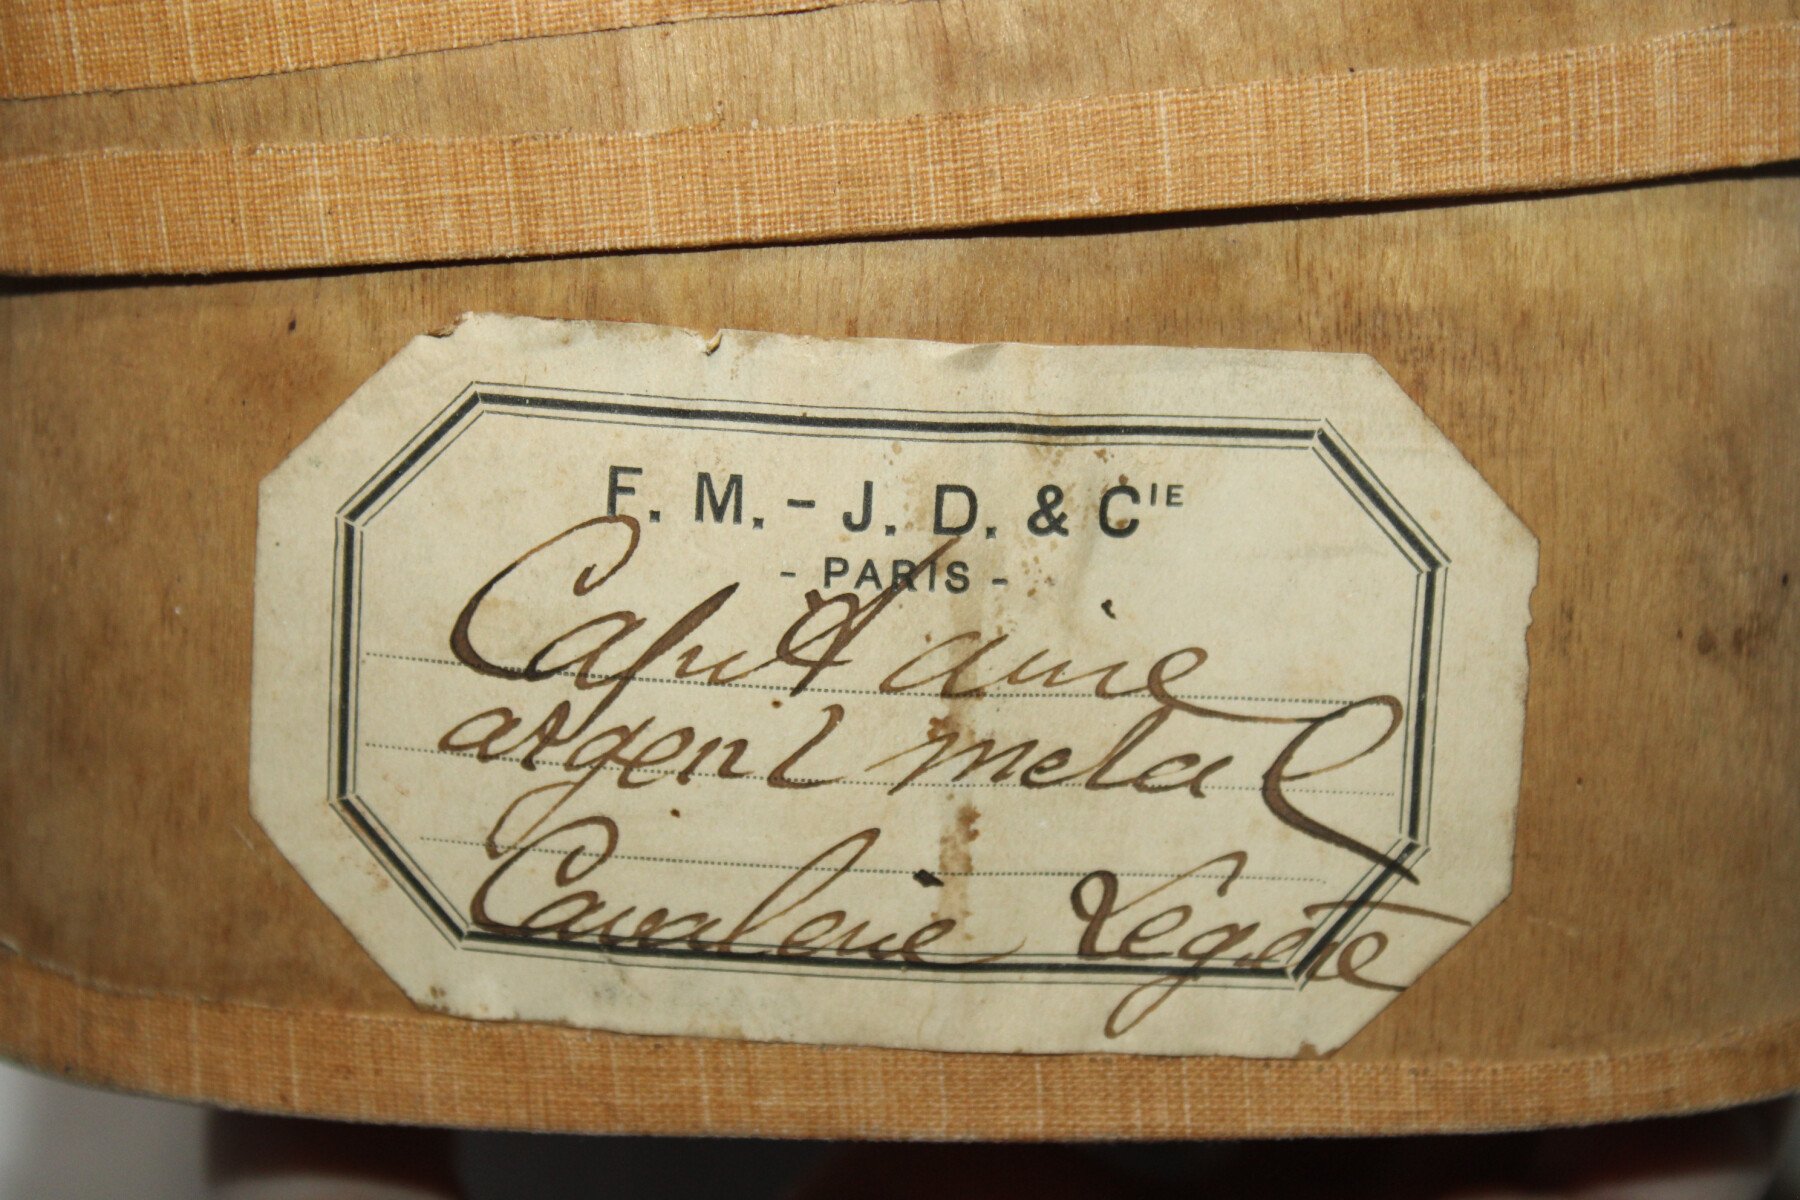 F. M. - J. D. & CIE
- PARIS -
Capitaine
argent metal
Cavalerie Légère